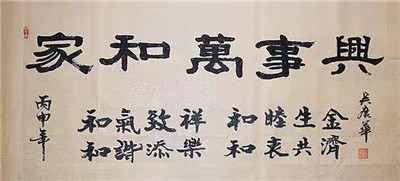 家和萬事興
和氣致祥 和睦生金
和諧添樂 和衷共濟
丙申年